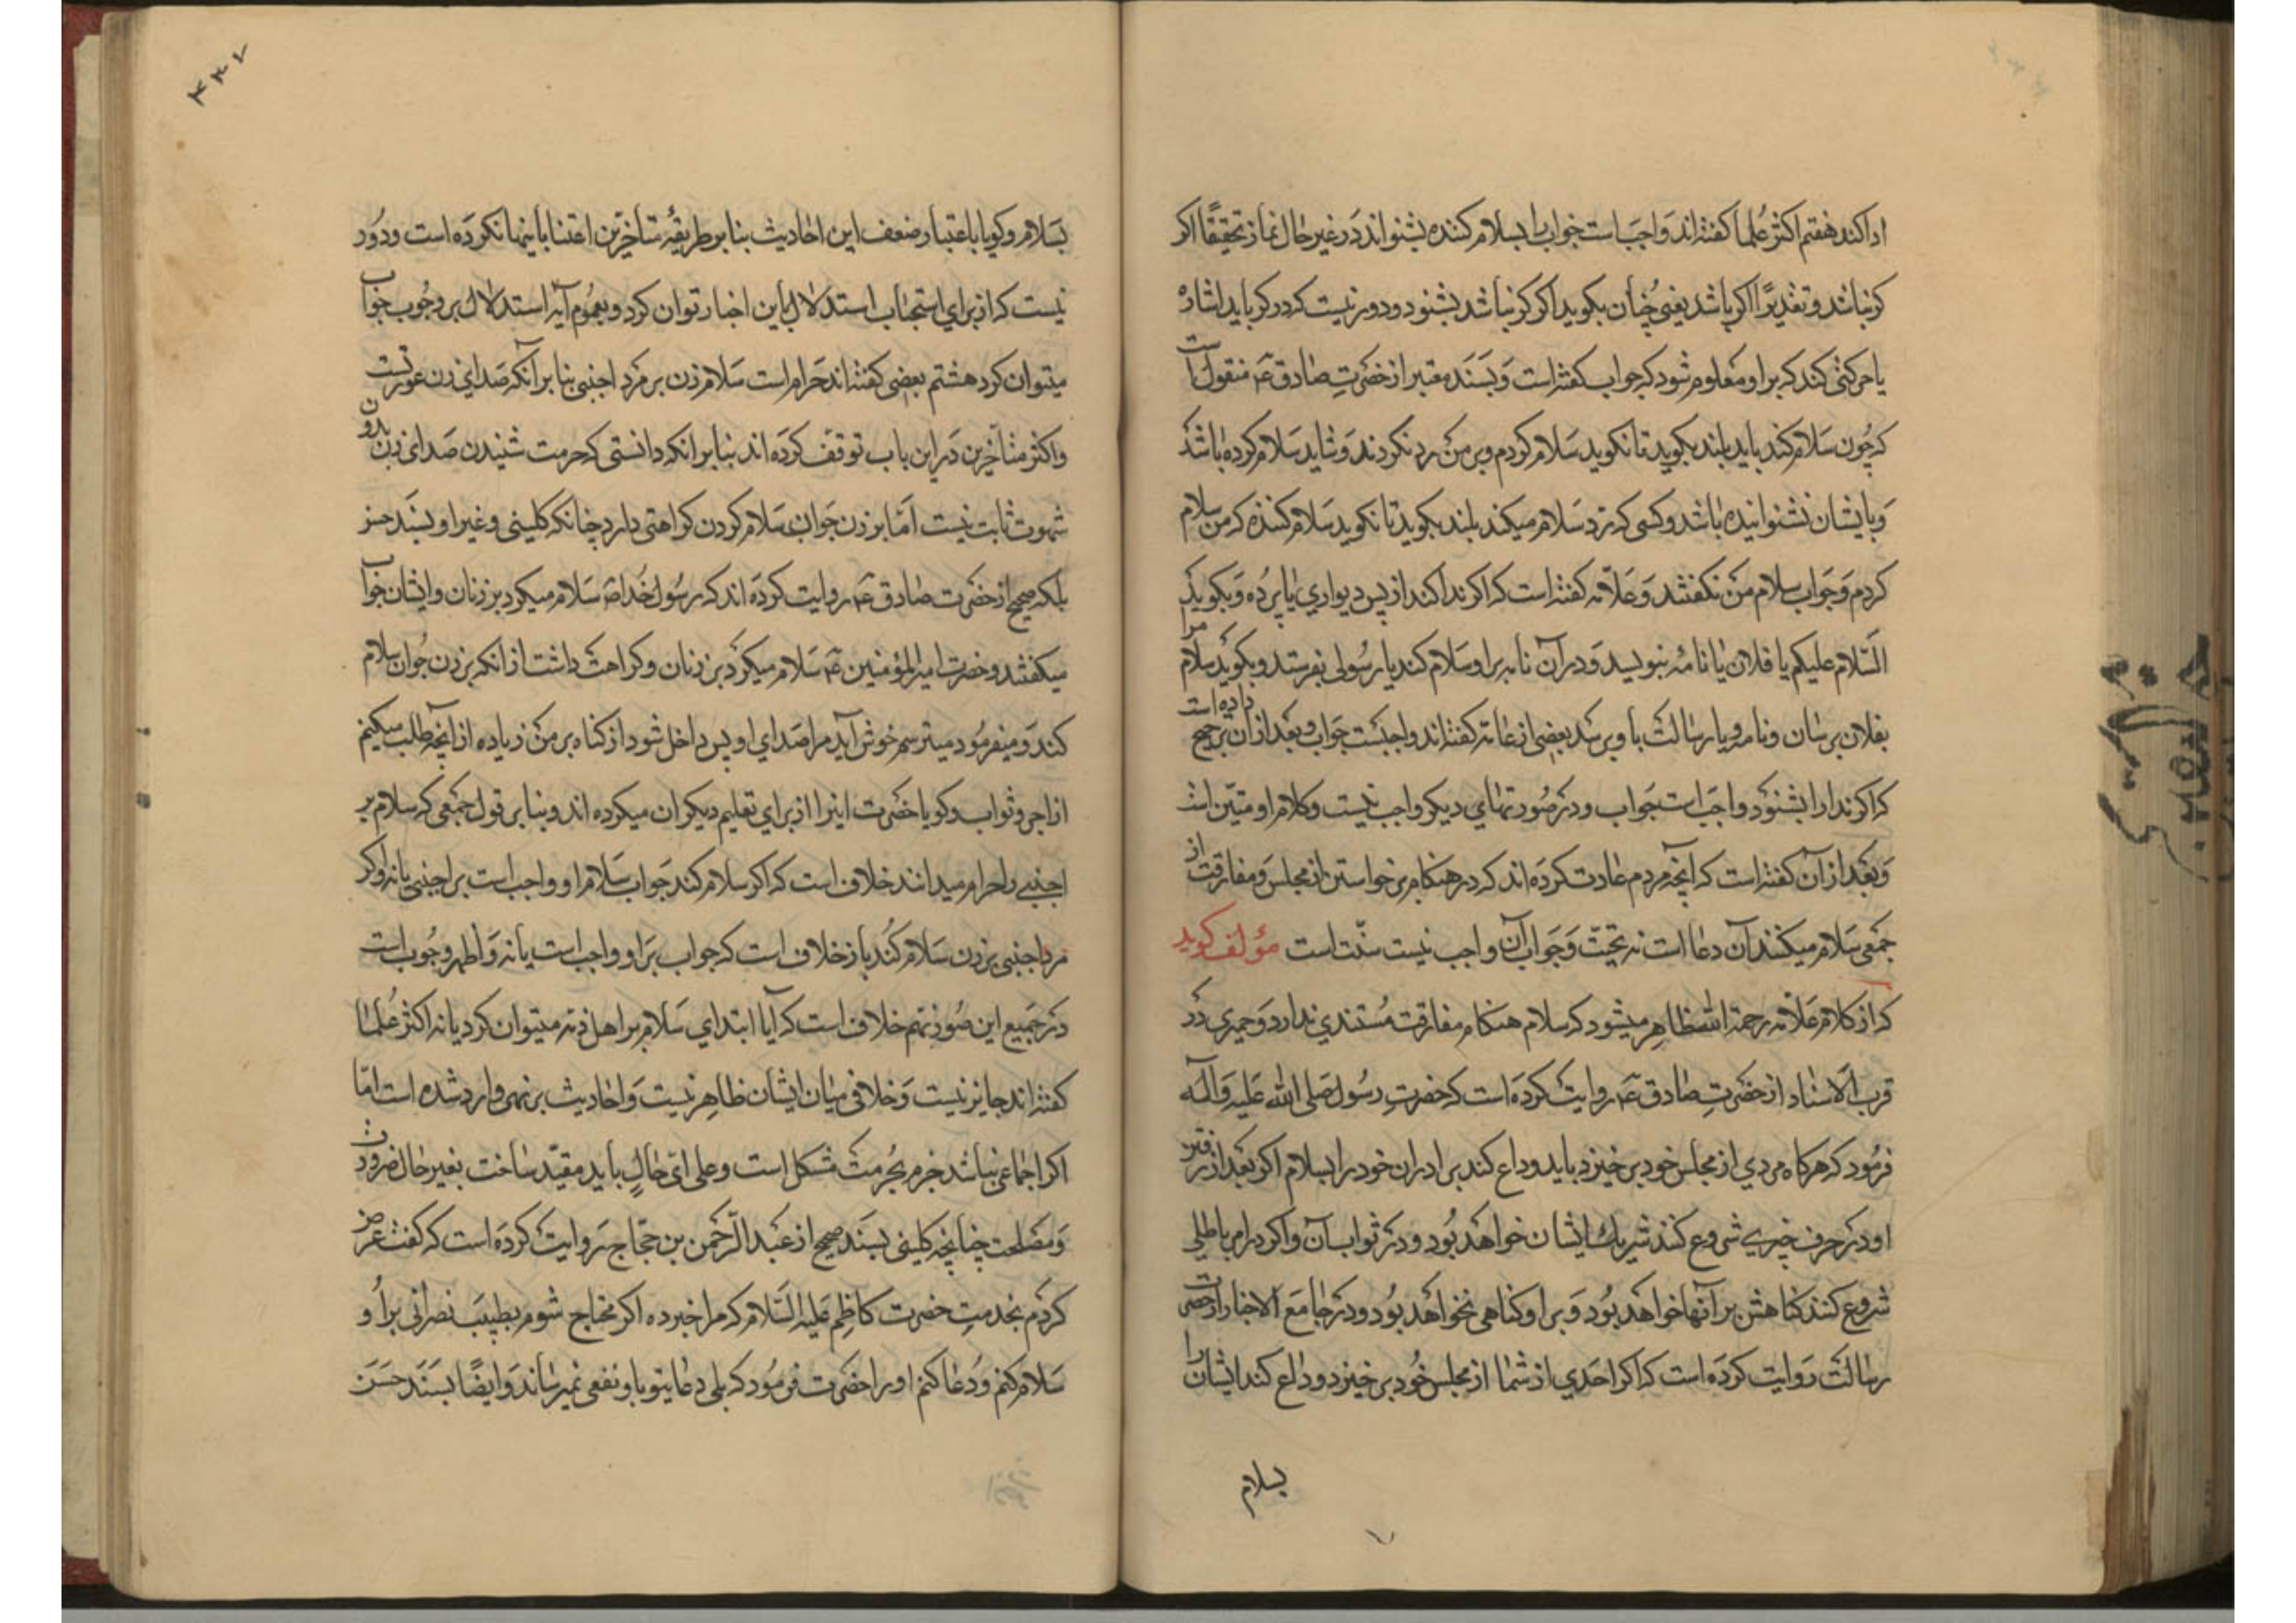 ادا کند هفتم اکثر علما گفته‌اند واجب است جواب را بسلام کننده بشنواند در غیر حال نماز تحقیقًا اکر
کر نباشد و تقدیرًا اکر باشد یعنی چنان بکوید که اکر کر نباشد بشنود و دور نیست که در کر باید اشاره
یا حرکتی کند که بر او معلوم شود که جواب کفته است و بسند معتبر از حضرت صادق ع منقول است
که چون سلام کند باید بلند بکوید تا نکوید سلام کردم و بر من رد نکردند و شاید سلام کرده باشد
و بایشان نشنوانیده باشد و کسی که رد سلام میکند بلند بکوید تا نکوید سلام کننده که من سلام
کردم و جواب سلام من نکفتند و علامه کفته است که اکر ندا کند از پس دیواری یا پرده و بکوید که
السّلام علیکم یا فلان یا نامه بنویسد و در آن نامه بر او سلام کند یا رسولی بفرستد و بکوید سلام مرا
بفلان برسان و نامه و یا رسالت باو برسد بعضی از عامه کفته‌اند واجبست جواب و بعد از آن ترجیح داده است
که اکر ندا را بشنود واجب است جواب و در صورتهای دیکر واجب نیست و کلام او متین است
و بعد از آن کفته است که آنچه مردم عادت کرده‌اند که در هنکام برخواستن از مجلس و مفارقت از
جمعی سلام میکنند آن دعا است نه تحیّت و جواب آن واجب نیست سنّت است مؤلف کوید
که از کلام علامه رحمة الله ظاهر میشود که سلام هنکام مفارقت مستندی ندارد و حمیری در
قرب الاسناد از حضرت صادق ع روایت کرده است که حضرت رسول صلی الله علیه و آله
فرمود که هرکاه مردی از مجلس خود برخیزد باید وداع کند برادران خود را بسلام اکر بعد از رفتن
او در حرف خیری شروع کنند شریک ایشان خواهد بود و در ثواب آن و اکر در امر باطلی
شروع کنند کناهش بر آنها خواهد بود و بر او کناهی نخواهد بود و در جامع الاخبار از حضرت
رسالت روایت کرده است که اکر احدی از شما از مجلس خود برخیزد وداع کند ایشان را
بسلام
۳۳۷
بسلام و کویا باعتبار ضعف این احادیث بنا بر طریقهٔ متأخّرین اعتنا باینها نکرده است و دور
نیست که از برای استحباب استدلال باین اخبار توان کرد و بعموم آیه استدلال بر وجوب جواب
میتوان کرد هشتم بعضی کفته‌اند حرام است سلام زن بر مرد اجنبی بنا بر آنکه صدای زن عورتست
و اکثر متأخرین در این باب توقف کرده‌اند بنا بر انکه دانستی که حرمت شنیدن صدای زن بدون
شهوت ثابت نیست امّا بر زن جوان سلام کردن کراهتی دارد چنانکه کلینی و غیر او بسند حسن
بلکه صحیح از حضرت صادق ع روایت کرده‌اند که رسول خدا ص سلام میکرد بر زنان و ایشان جواب
میکفتند و حضرت امیرالمؤمنین ع سلام میکرد بر زنان و کراهت داشت از انکه بر زن جوان سلام
کند و میفرمود میترسم خوش آید مرا صدای او پس داخل شود از کناه بر من زیاده از آنچه طلب میکنم
از اجر و ثواب و کویا حضرت اینرا از برای تعلیم دیکران میکرده‌اند و بنا بر قول جمعی که سلام بر
اجنبی را حرام میدانند خلاف است که اکر سلام کند جواب سلام او واجب است بر اجنبی یا نه و اکر
مرد اجنبی بر زن سلام کند باز خلاف است که جواب بر او واجب است یا نه و اظهر وجوب است
در جمیع این صور نهم خلاف است که آیا ابتدای سلام بر اهل ذمه میتوان کرد یا نه اکثر علما
کفته‌اند جایز نیست و خلافی میان ایشان ظاهر نیست و احادیث بر نهی وارد شده است امّا
اکر اجماعی نباشد جزم بحرمت مشکل است و علی ایّ حالٍ باید مقیّد ساخت بغیر حال ضرورت
و مصلحت چنانچه کلینی بسند صحیح از عبد الرّحمن بن حجّاج روایت کرده است که کفت عرض
کردم بخدمت حضرت کاظم علیه السّلام که مرا خبر ده اکر محتاج شوم بطبیب نصرانی بر او
سلام کنم و دعا کنم او را حضرت فرمود که بلی دعای تو باو نفعی نمیرساند و ایضًا بسند حسن